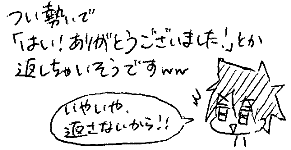 つい勢いで
「はい！ありがとうございました！」とか
返しちゃいそうですww
いやいや、
返さないから!!